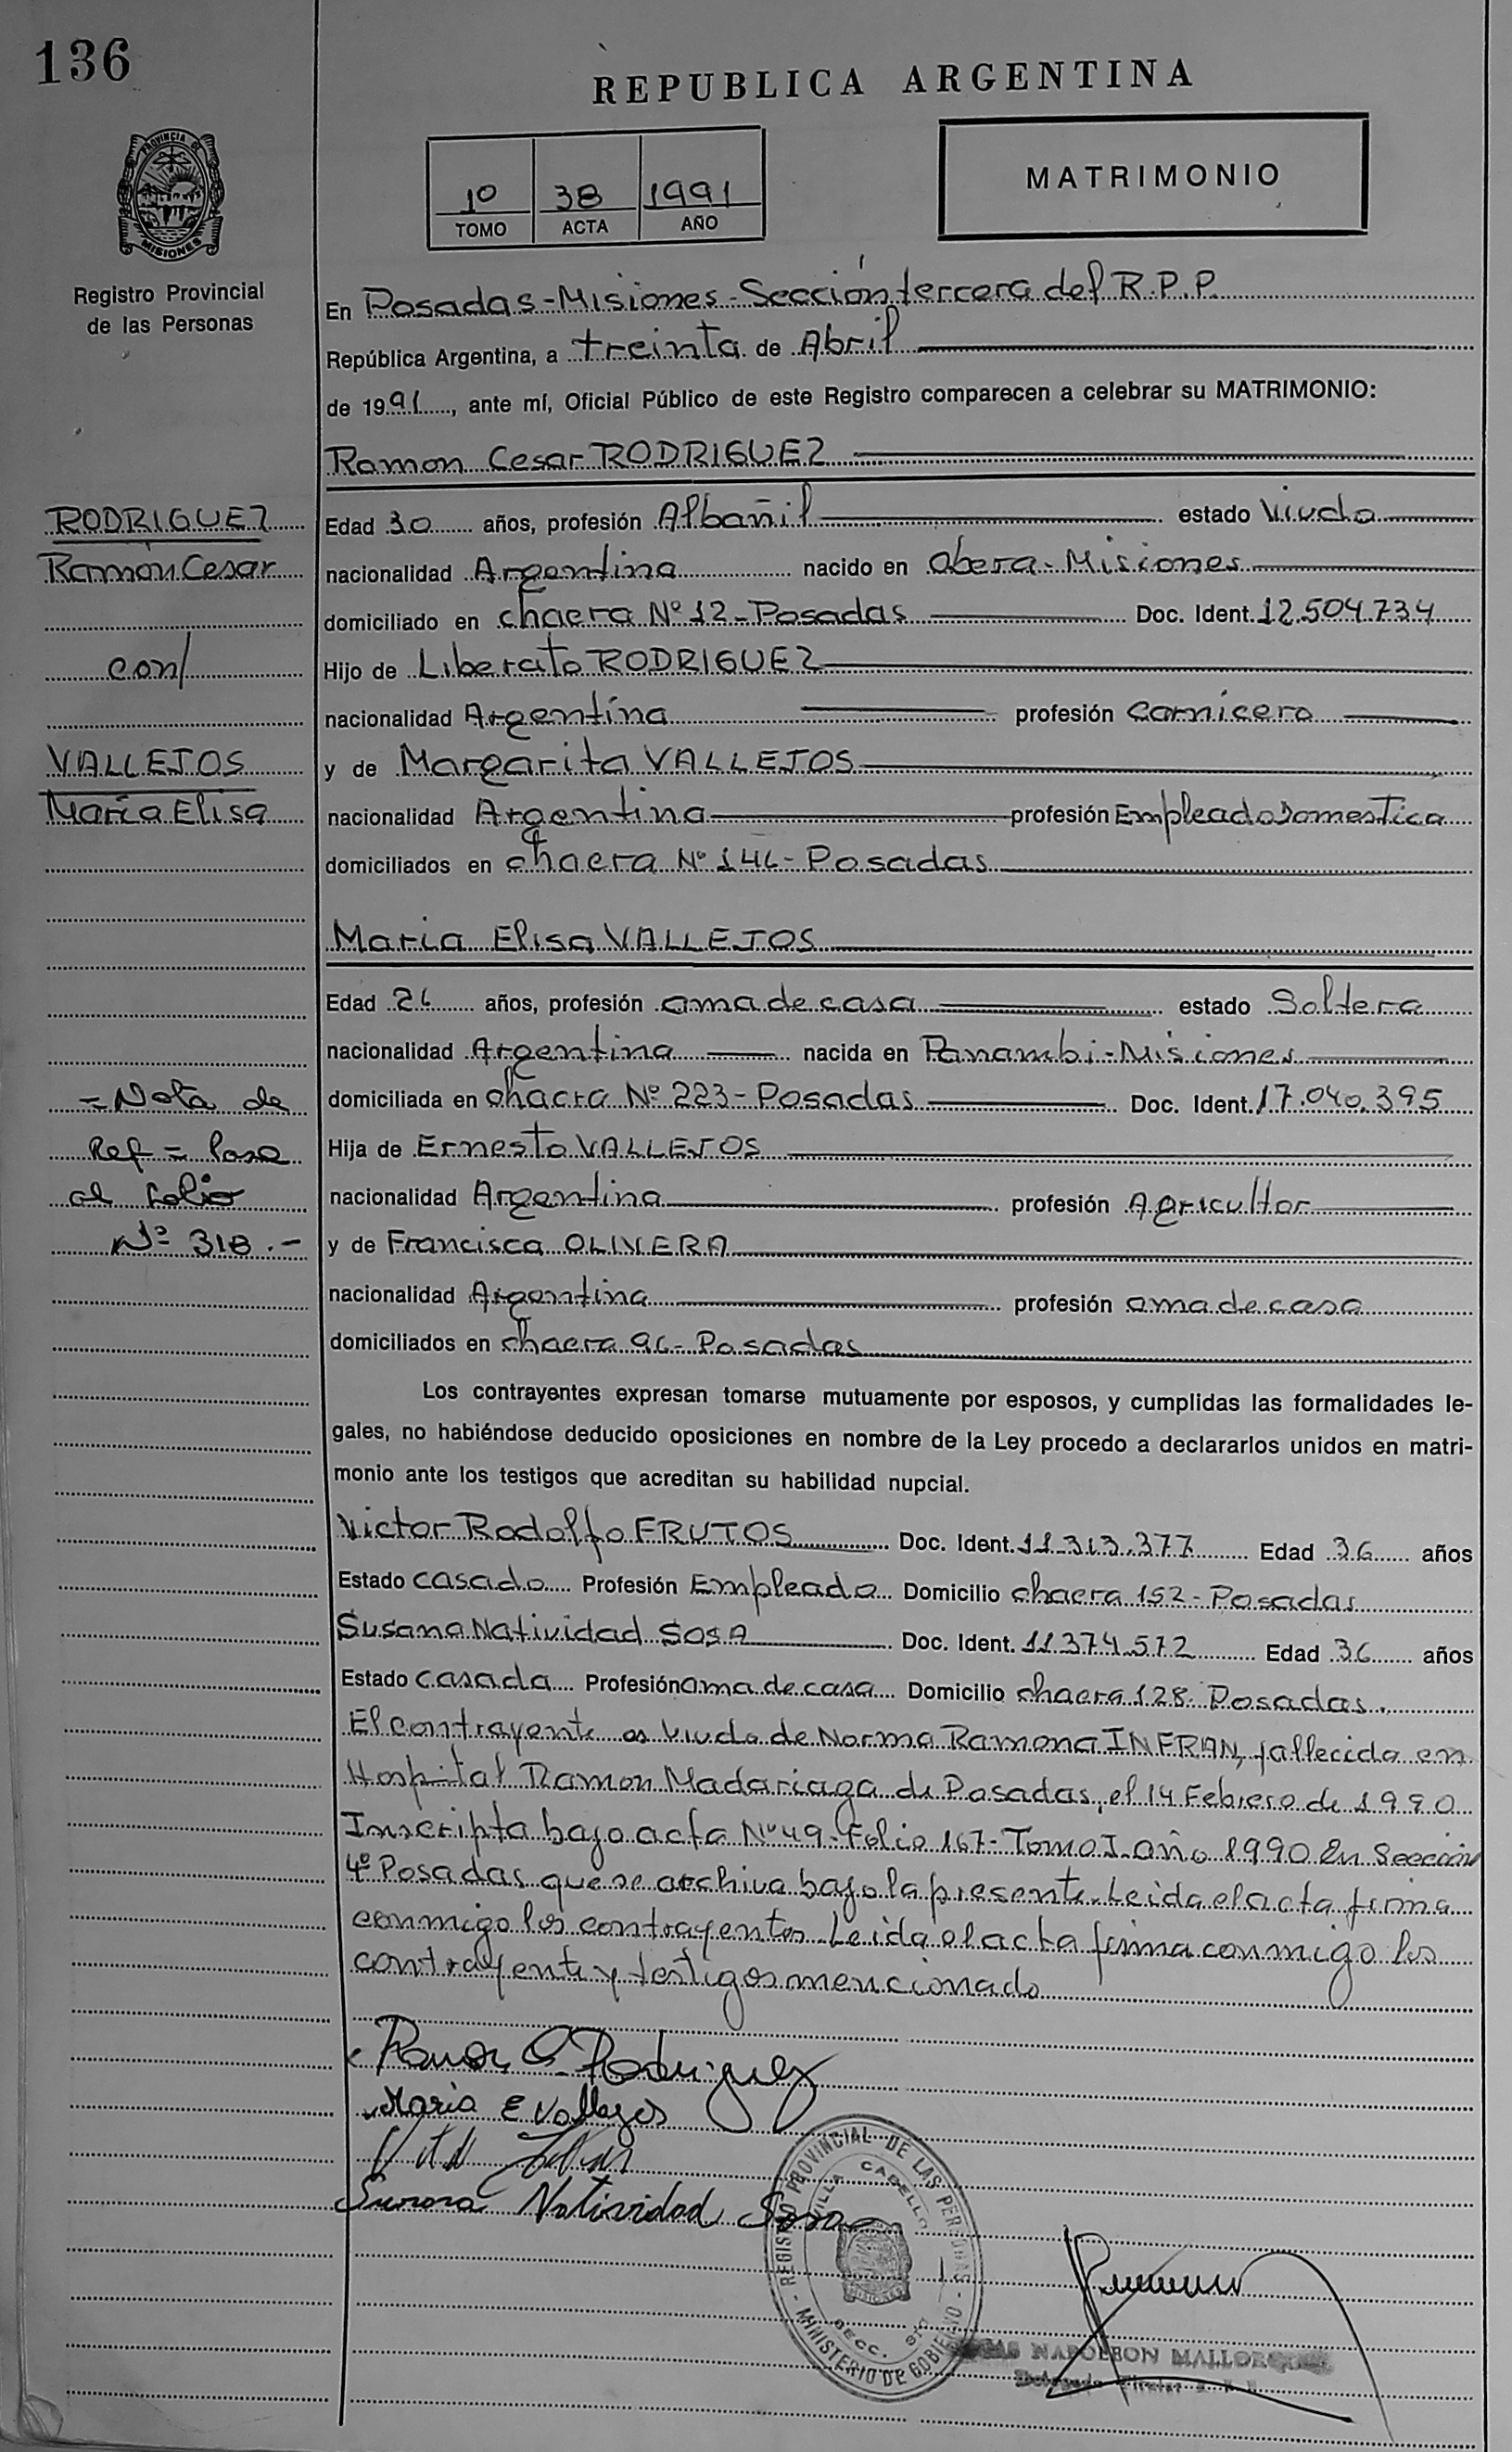 136
REPUBLICA ARGENTINA
PROVINCIA DE
MISIONES
Registro Provincial
de las Personas
1º 38 1991
TOMO ACTA AÑO
MATRIMONIO
En Posadas-Misiones-Sección tercera del R.P.P.
República Argentina, a treinta de Abril
de 1991, ante mí, Oficial Público de este Registro comparecen a celebrar su MATRIMONIO:
Ramon Cesar RODRIGUEZ
RODRIGUEZ
Ramón Cesar
con/
VALLEJOS
María Elisa
Edad 30 años, profesión Albañil estado Viudo
nacionalidad Argentina nacido en Obera-Misiones
domiciliado en chacra Nº 12-Posadas Doc. Ident. 12.504.734
Hijo de Liberato RODRIGUEZ
nacionalidad Argentina profesión carnicero
y de Margarita VALLEJOS
nacionalidad Argentina profesión Empleada Domestica
domiciliados en chacra Nº 146-Posadas
Maria Elisa VALLEJOS
Edad 26 años, profesión ama de casa estado Soltera
nacionalidad Argentina nacida en Panambi-Misiones
domiciliada en chacra Nº 223-Posadas Doc. Ident. 17.040.395
Hija de Ernesto VALLEJOS
nacionalidad Argentina profesión Agricultor
y de Francisca OLIVERA
nacionalidad Argentina profesión ama de casa
domiciliados en chacra 96-Posadas
=Nota de
Ref= Pasa
al folio
Nº 318.-
Los contrayentes expresan tomarse mutuamente por esposos, y cumplidas las formalidades le-
gales, no habiéndose deducido oposiciones en nombre de la Ley procedo a declararlos unidos en matri-
monio ante los testigos que acreditan su habilidad nupcial.
Victor Rodolfo FRUTOS Doc. Ident. 11.313.377 Edad 36 años
Estado casado Profesión Empleado Domicilio chacra 152-Posadas
Susana Natividad SOSA Doc. Ident. 11.374.572 Edad 36 años
Estado casada Profesión ama de casa Domicilio chacra 128-Posadas.
El contrayente es viudo de Norma Ramona INFRAN, fallecida en
Hospital Ramon Madariaga de Posadas, el 14 Febrero de 1990
Inscripta bajo acta Nº 49-Folio 167-Tomo I-año 1990 En Sección
4º Posadas que se archiva bajo la presente-Leida el acta firma
conmigo los contrayentes-Leida el acta firma conmigo los
contrayente y testigos mencionado
Ramon C. Rodriguez
Maria E Vallejos
Susana Natividad Sosa
REGISTRO PROVINCIAL DE LAS PERSONAS
VILLA CABELLO
SECC.
- MINISTERIO DE GOBIERNO -
NAPOLEON